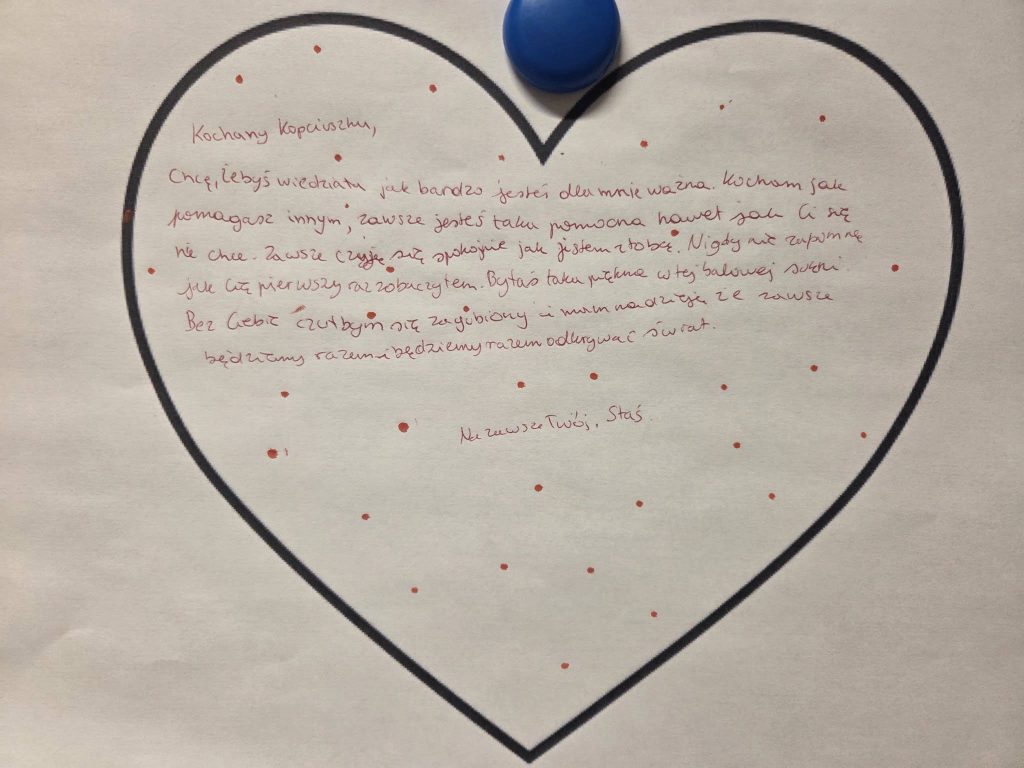 Kochany Kopciuszku,
Chcę, żebyś wiedziała jak bardzo jesteś dla mnie ważna. Kocham jak
pomagasz innym, zawsze jesteś taka pomocna nawet jak Ci się
nie chce. Zawsze czyję się spokojnie jak jestem z tobą. Nigdy nie zapomnę
jak Cię pierwszy raz zobaczyłem. Byłaś taka piękna w tej balowej sukni.
Bez Ciebie czułbym się zagubiony i mam nadzieję że zawsze
będziemy razem i będziemy razem odkrywać świat.
Na zawsze Twój, Staś.